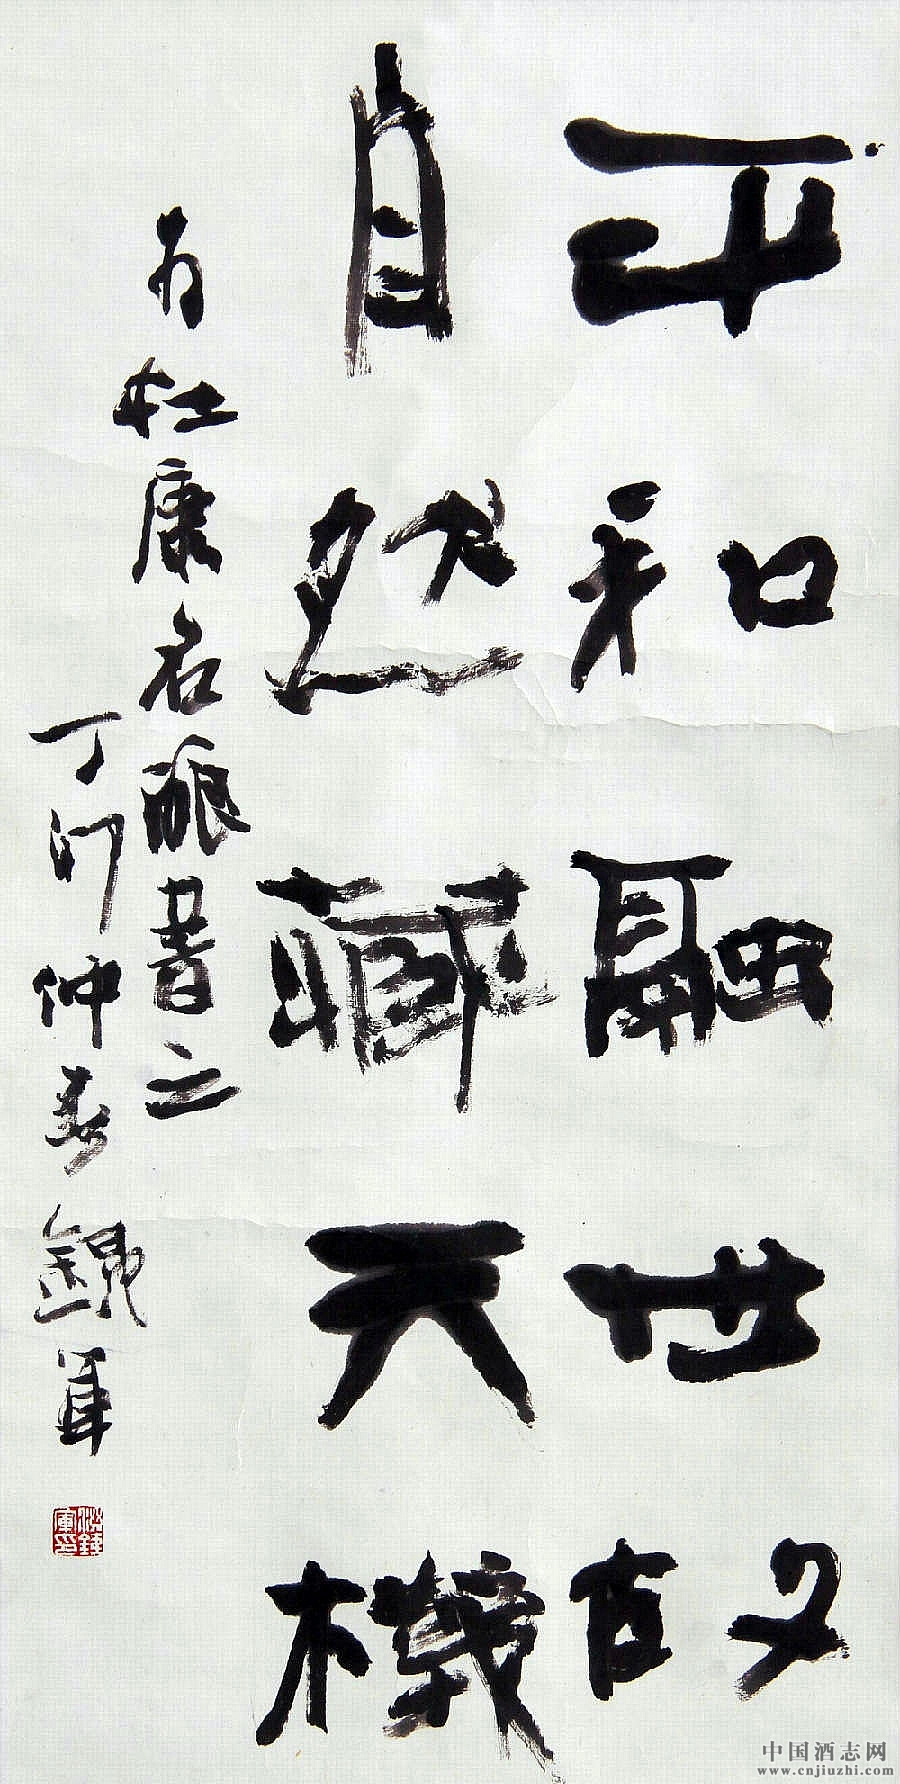 平和融世故
自然藏天機
为杜康名酿書之
丁卯仲春 錕軍
中国酒志网
www.cnjiuzhi.com